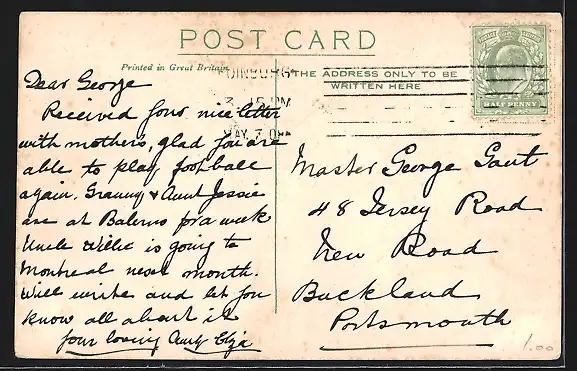 POST CARD
Printed in Great Britain
THE ADDRESS ONLY TO BE
WRITTEN HERE
DINBURGH
3 15 PM
MAY 7
HALF PENNY
Dear George
Received your nice letter
with mothers, glad you are
able to play football
again. Granny & Aunt Jessie
are at Balerno for a week
Uncle Willie is going to
Montreal next month.
Will write and let you
know all about it
your loving Aunt Eliza
Master George Gaut
48 Jersey Road
New Road
Buckland
Portsmouth
1.00